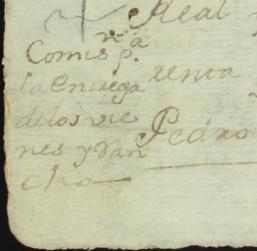 Real
Comisn pa.
la entrega
renta
de los vie
Pedro
nes y Ran
cho